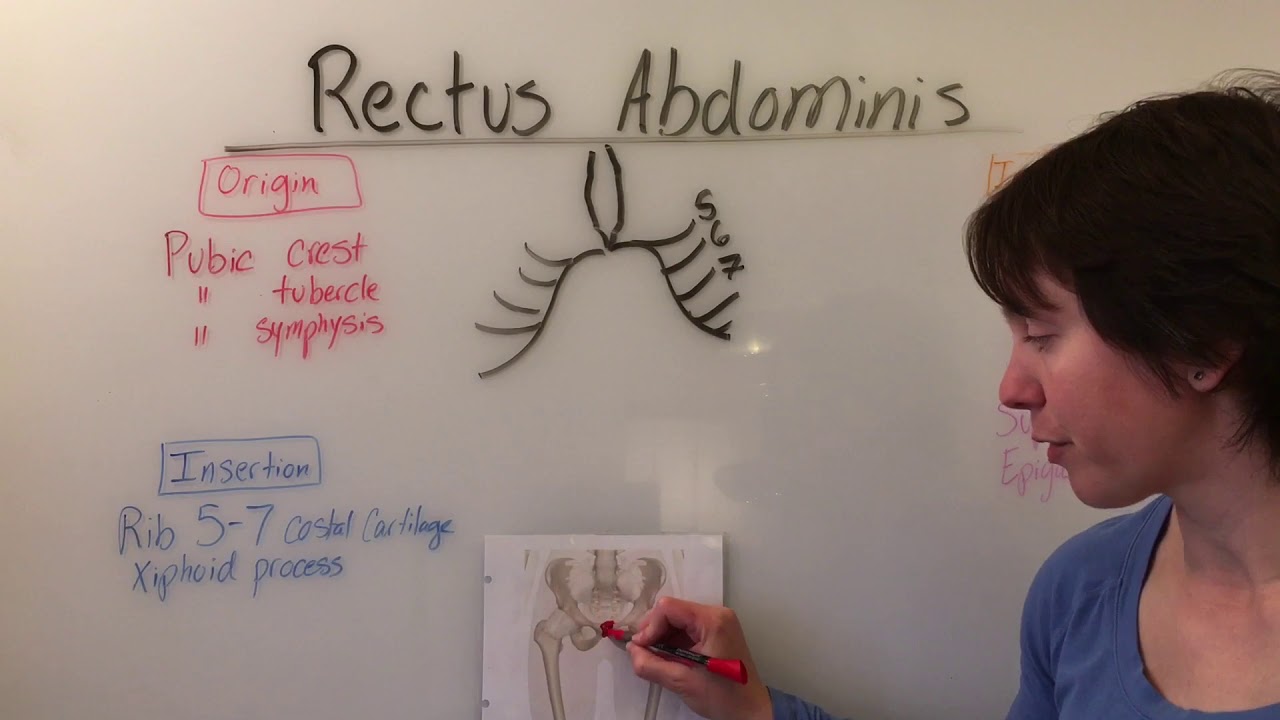 Rectus Abdominis
Origin
Pubic crest
" tubercle
" symphysis
5
6
7
Insertion
Rib 5-7 costal Cartilage
Xiphoid process